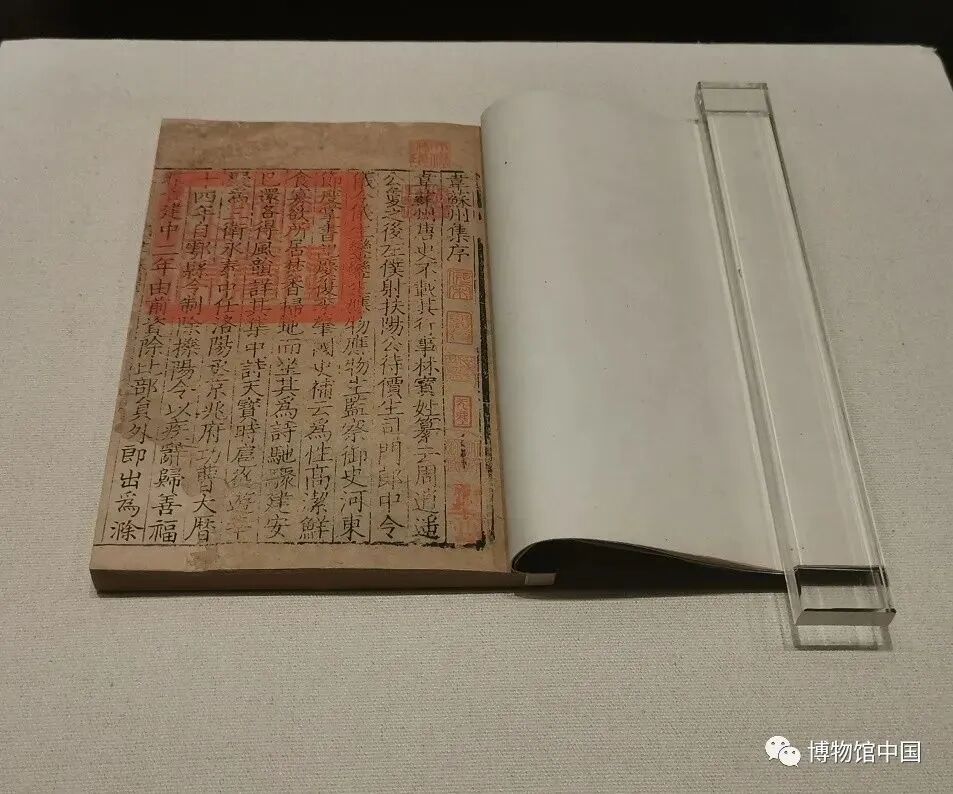 韋蘇州集序
韋蘇州唐史不載其行事林寶姓纂云周逍遥
公夐之後左僕射扶陽公待價生司門郎中令
儀令儀生應物應物生監察御史河東
節度掌書記慶復李肇國史補云為性高潔鮮
食寡欲所居焚香掃地而坐其為詩馳驟建安
已還各得風韻詳其集中詩天寶時扈從遊幸
疑為三衛永泰中任洛陽丞京兆府功曹大曆
十四年自鄠縣令制除櫟陽令以疾辭歸善福
建中二年由前資除比部員外郎出為滁
博物馆中国